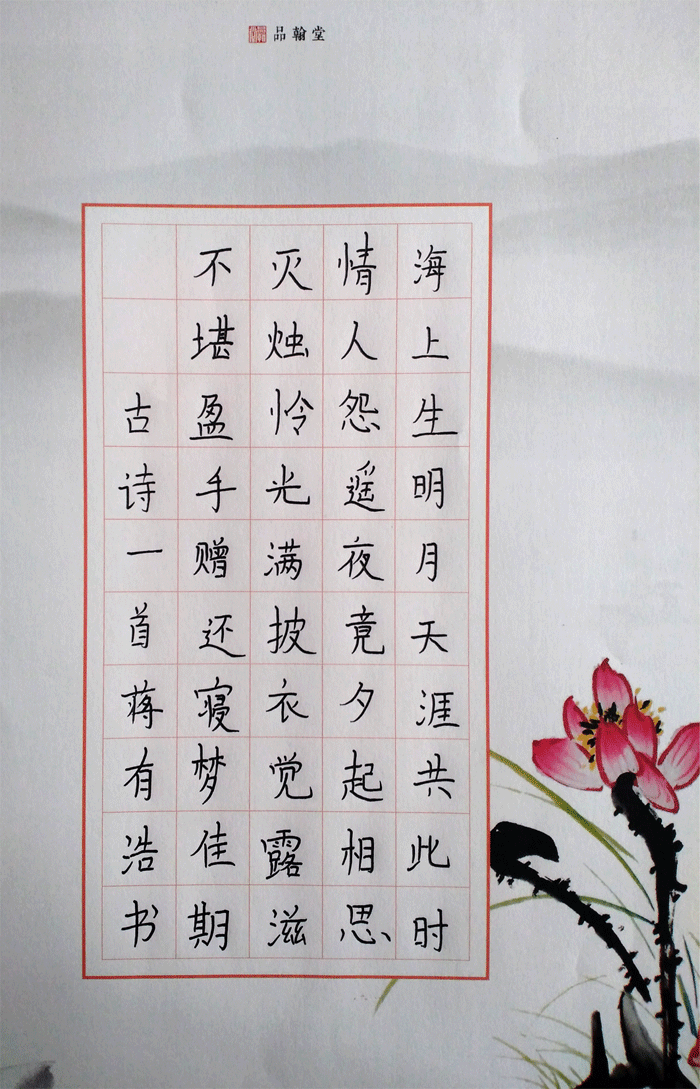 品翰堂
海上生明月天涯共此时
情人怨遥夜竟夕起相思
灭烛怜光满披衣觉露滋
不堪盈手赠还寝梦佳期
古诗一首蒋有浩书